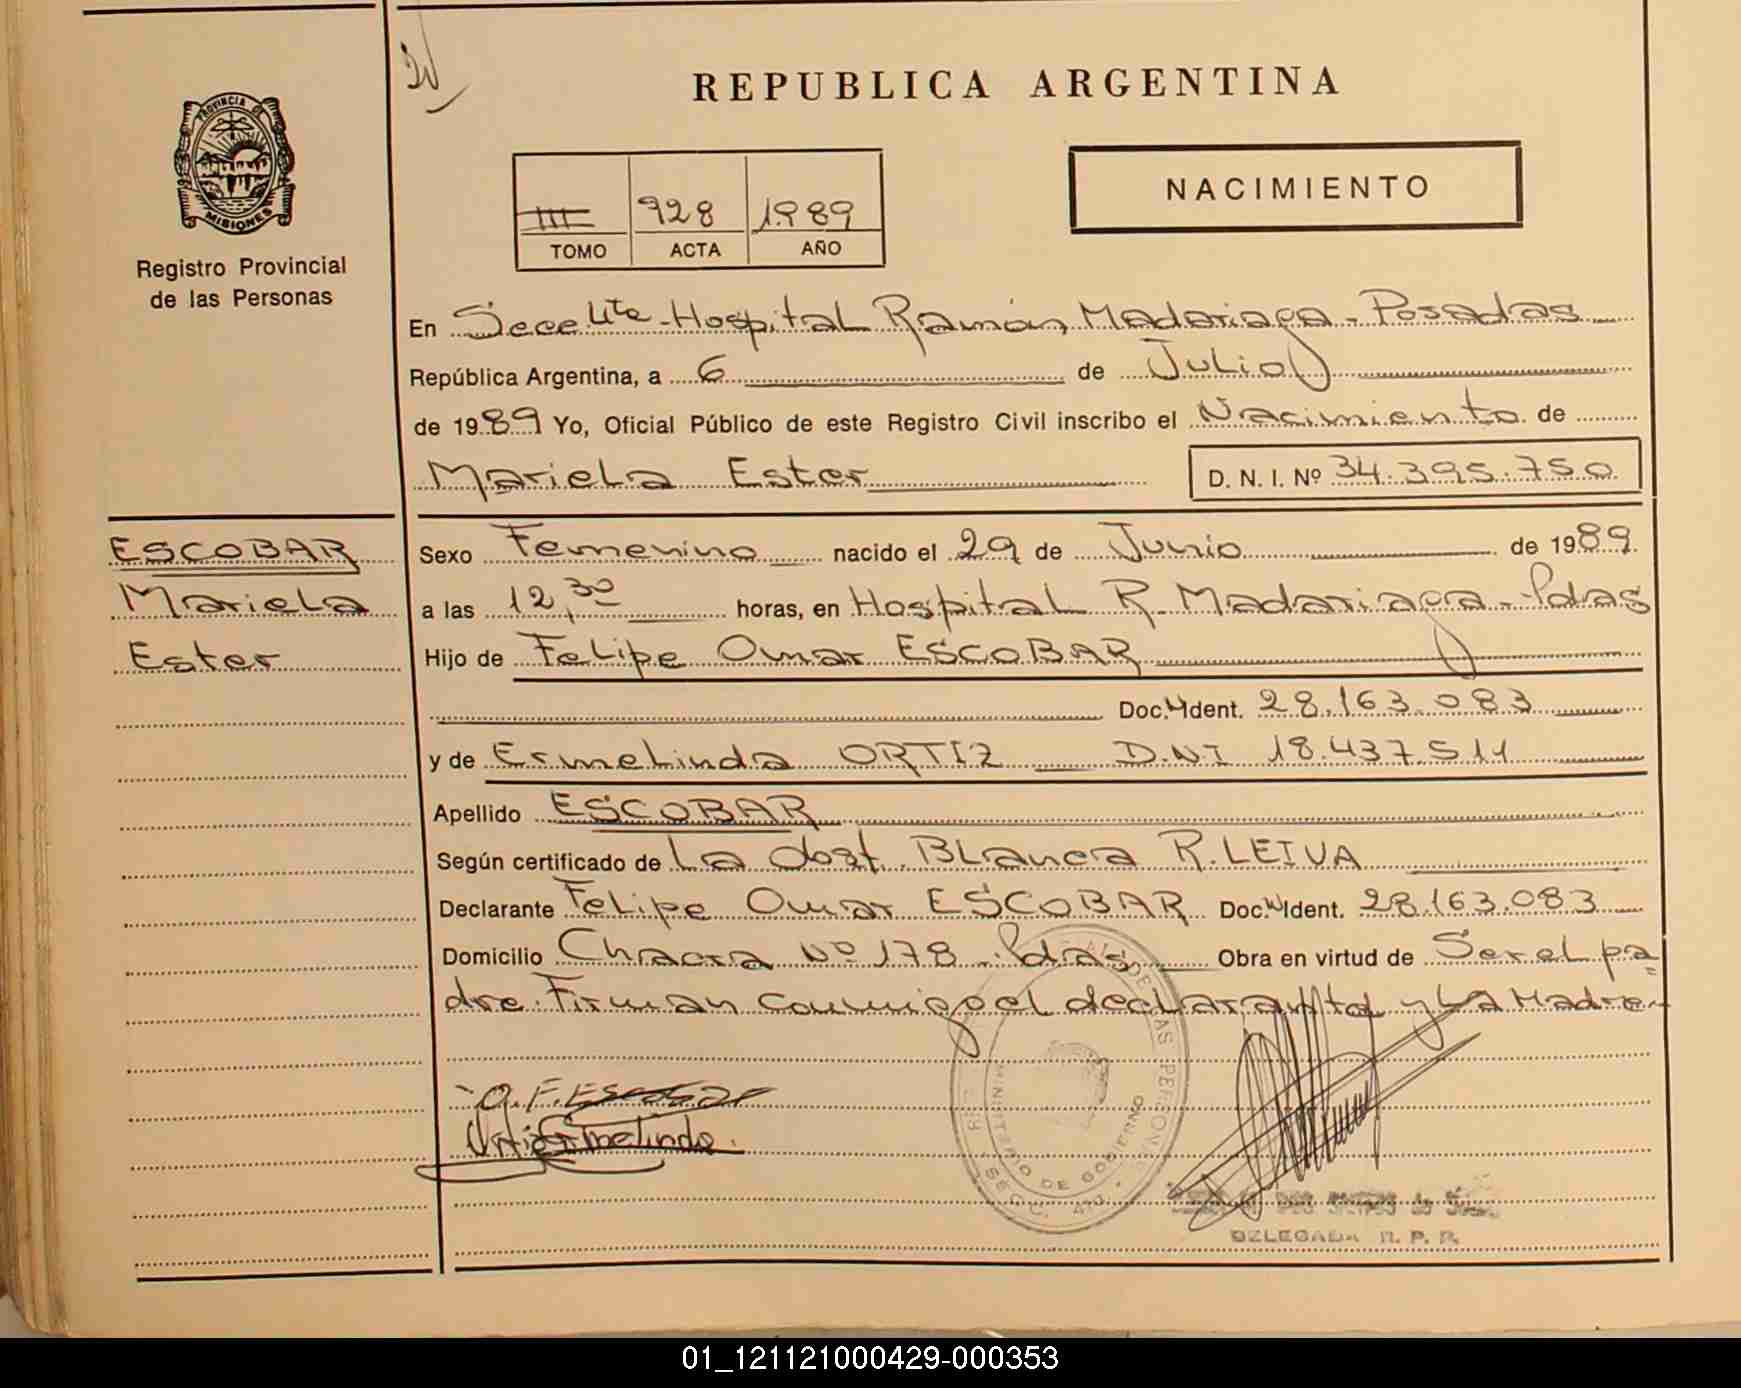 REPUBLICA ARGENTINA
PROVINCIA DE
MISIONES
Registro Provincial
de las Personas
III 928 1989
TOMO ACTA AÑO
NACIMIENTO
En Secc 4ta - Hospital Ramón Madariaga - Posadas
República Argentina, a 6 de Julio
de 1989 Yo, Oficial Público de este Registro Civil inscribo el Nacimiento de
Mariela Ester D. N. I. Nº 34.395.750
ESCOBAR
Mariela
Ester
Sexo Femenino nacido el 29 de Junio de 1989
a las 12,30 horas, en Hospital R. Madariaga - Pdas
Hijo de Felipe Omar ESCOBAR
Doc. Ident. 28.163.083
y de Ermelinda ORTIZ D.N.I 18.437.511
Apellido ESCOBAR
Según certificado de La obst. Blanca R. LEIVA
Declarante Felipe Omar ESCOBAR Doc. Ident. 28.163.083
Domicilio Chacra Nº 178 - Pdas Obra en virtud de Ser el pa=
dre. Firman conmigo el declarante y La Madre-
O. F. Escobar
Ortiz Ermelinda
DE LAS PERSONAS
MINISTERIO DE GOBIERNO
SECC. 4ta
DELEGADA R. P. P.
01_121121000429-000353